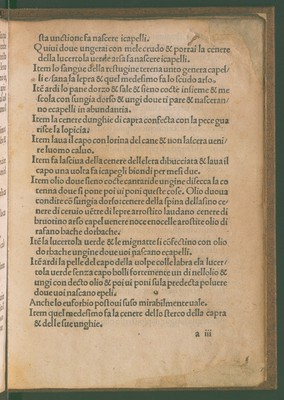 sta unctione fa nascere icapelli.
Quiui doue ungerai con mele crudo & porrai la cenere
della lucertola uerde arsa fa nascere icapelli.
Item lo sangue della testugine terena unto genera capel/
li e sana la lepra & quel medesimo fa lo scudo arso.
Ité ardi lo pane dorzo & sale & sieno cocte insieme & me
scola con sungia dorso & ungi doue ti pare & nasceran/
no ecapelli in abundantia.
Item la cenere dunghie di capra confecta con la pece gua
risce la lopicia:
Item laua il capo con lorina del cane & non lascera ueni/
re luomo caluo.
Item fa lasciua della cenere dellelera dibucciata & laua il
capo una uolta fa icapegli biondi per mesi due.
Item olio doue sieno cocte cantaride ungine disecca la co
tenna doue si pone poi ui poni queste cose. Olio doue
condite cō sungia dorso: cenere della spina dellasino ce/
nere di ceruio uētre di lepre arrostico laudano cenere di
bruotino arso capel uenere noce nocelle arostite olio di
rasano bache dorbache.
Ité la lucertola uerde & le mignatte si cōfectino con olio
dorbache ungine doue uoi nascano ecapelli.
Ité ardi la pelle del capo della uolpe colle labra ela lucer/
tola uerde sanza capo bolli fortemente un di nellolio &
ungi con decto olio & poi ui poni sula predecta poluere
doue uoi nascano epeli.
Anche lo euforbio postoui suso mirabilmente uale.
Item quel medesimo fa la cenere dello sterco della capra
& delle sue unghie.
a iii